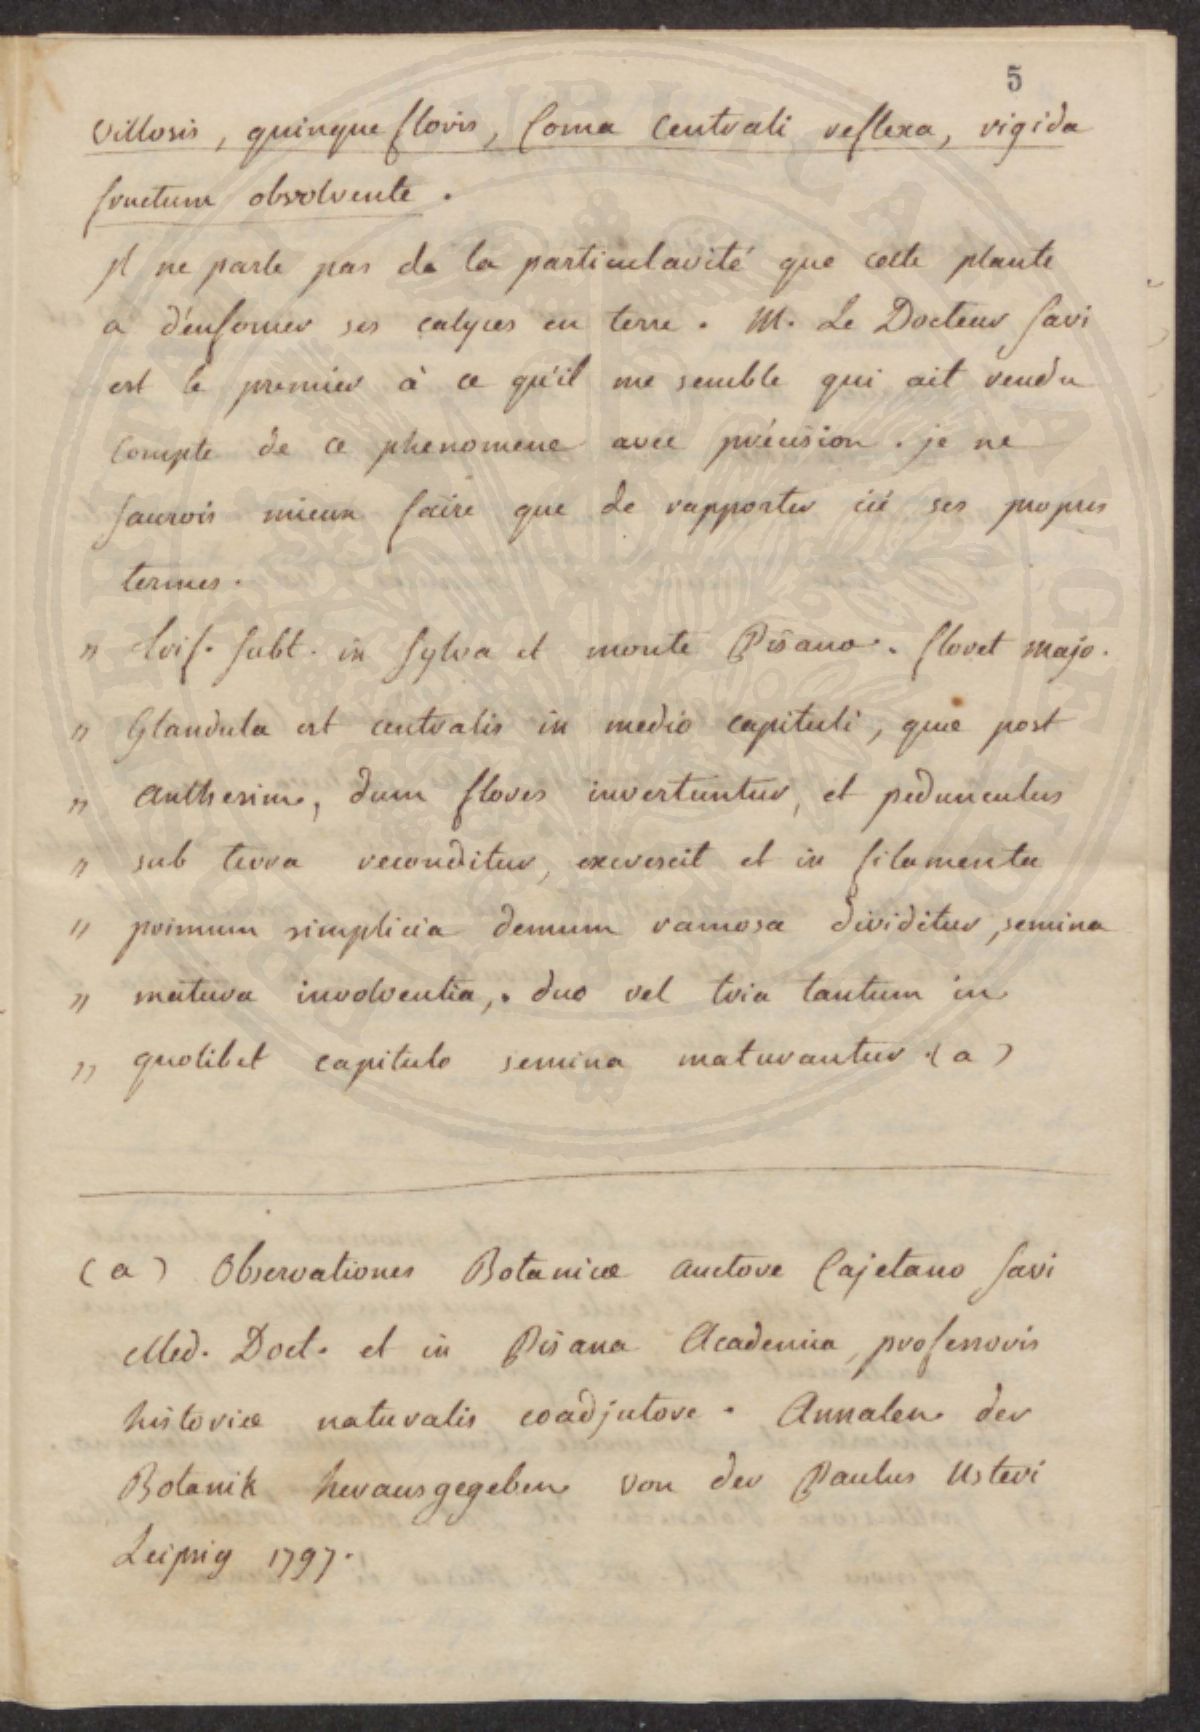 5
villosis, quinque floris, Coma centrali reflexa, rigida
fructum obvolvente.
jl ne parle pas de la particularité que cette plante
a d'enfoncer ses calyces en terre. M. Le Docteur Savi
est le premier à ce qu'il me semble qui ait rendu
Compte de ce phenomene avec précision. je ne
saurois mieux faire que de rapporter ici ses propres
termes.
" Trif. Subt. in Sylva et monte Pisano. floret majo.
" Glandula est centralis in medio capituli, quæ post
" anthesim, dum flores invertuntur, et pedunculus
" sub terra reconditur, excrescit et in filamenta
" primum simplicia demum ramosa dividitur, semina
" matura involventia,. duo vel tria tantum in
" quolibet capitulo semina maturantur.(a)
(a) Observationes Botanicæ auctore Cajetano Savi
Med. Doct. et in Pisana Academia, professoris
historiæ naturalis coadjutore. Annalen der
Botanik herausgegeben von der Paulus Usteri
Leipsig 1797.